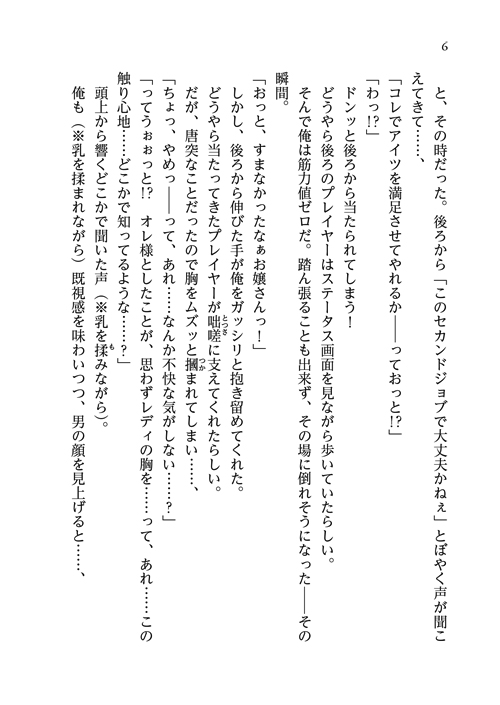 6
と、その時だった。後ろから「このセカンドジョブで大丈夫かねぇ」とぼやく声が聞こ
えてきて……、
「コレでアイツを満足させてやれるか――っておっと!?」
「わっ!?」
ドンッと後ろから当たられてしまう！
どうやら後ろのプレイヤーはステータス画面を見ながら歩いていたらしい。
そんで俺は筋力値ゼロだ。踏ん張ることも出来ず、その場に倒れそうになった――その
瞬間。
「おっと、すまなかったなぁお嬢さんっ！」
しかし、後ろから伸びた手が俺をガッシリと抱き留めてくれた。
どうやら当たってきたプレイヤーが咄嗟とっさに支えてくれたらしい。
だが、唐突なことだったので胸をムズッと摑つかまれてしまい……、
「ちょっ、やめっ――って、あれ……なんか不快な気がしない……？」
「ってうぉぉっと!?　オレ様としたことが、思わずレディの胸を……って、あれ……この
触り心地……どこかで知ってるような……？」
頭上から響くどこかで聞いた声（※乳を揉もみながら）。
俺も（※乳を揉まれながら）既視感を味わいつつ、男の顔を見上げると……、